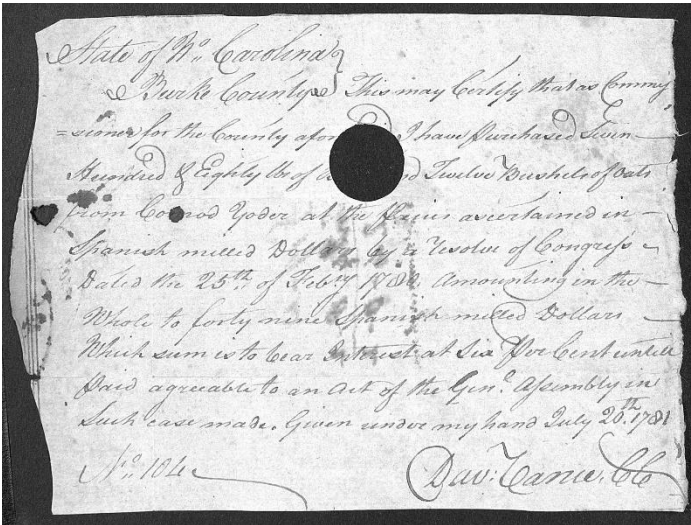 State of No. Carolina }
Burke County } This may Certify that as Commis
=sioner for the County afore I have Purchased Seven
Hundred & Eighty lbs of and Twelve Bushels of oats
from Conrod Yoder at the Prices ascertained in
Spanish milled Dollars by a resolve of Congress
Dated the 25th of Feby 1780 Amounting in the
Whole to forty nine Spanish milled Dollars
Which sum is to bear Interest at Six Per Cent untill
paid agreable to an Act of the Genl. Assembly in
Such case made. Given under my hand July 20th 1781
No. 104
Dav: Vance, CC